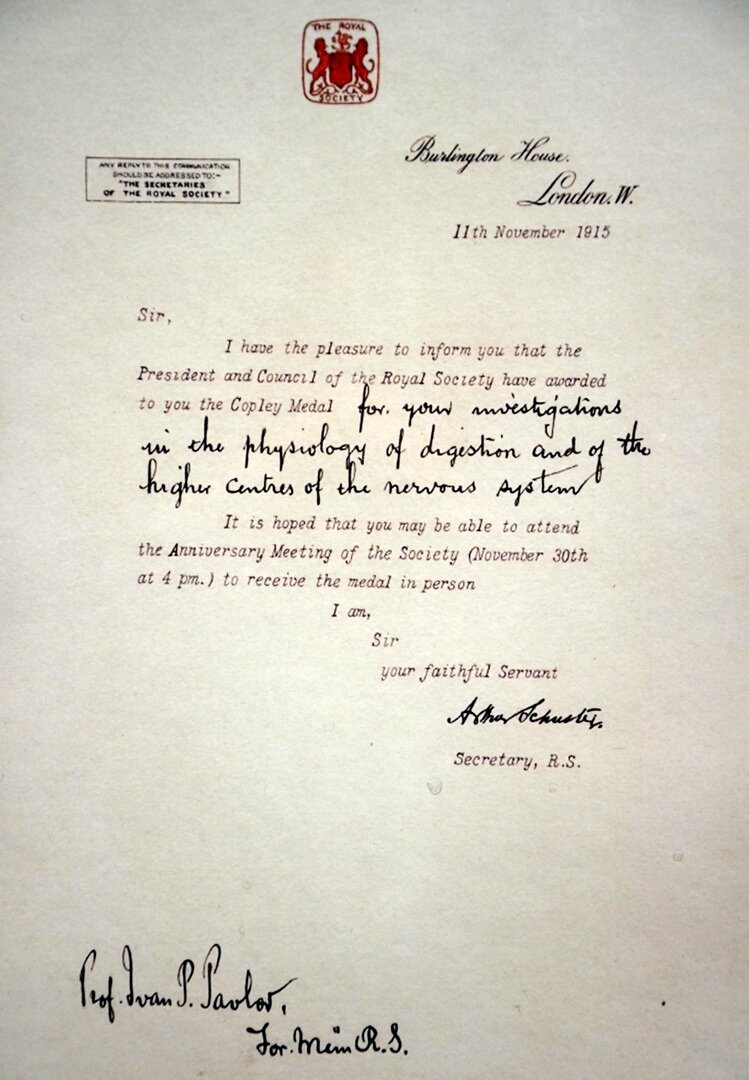 THE ROYAL
SOCIETY
ANY REPLY TO THIS COMMUNICATION
SHOULD BE ADDRESSED TO:-
"THE SECRETARIES
OF THE ROYAL SOCIETY."
Burlington House.
London. W.
11th November 1915
Sir,
I have the pleasure to inform you that the
President and Council of the Royal Society have awarded
to you the Copley Medal for your investigations
in the physiology of digestion and of the
higher centres of the nervous system
It is hoped that you may be able to attend
the Anniversary Meeting of the Society (November 30th
at 4 pm.) to receive the medal in person
I am,
Sir
your faithful Servant
Arthur Schuster.
Secretary, R.S.
Prof. Ivan P. Pavlov,
For. Mem R.S.